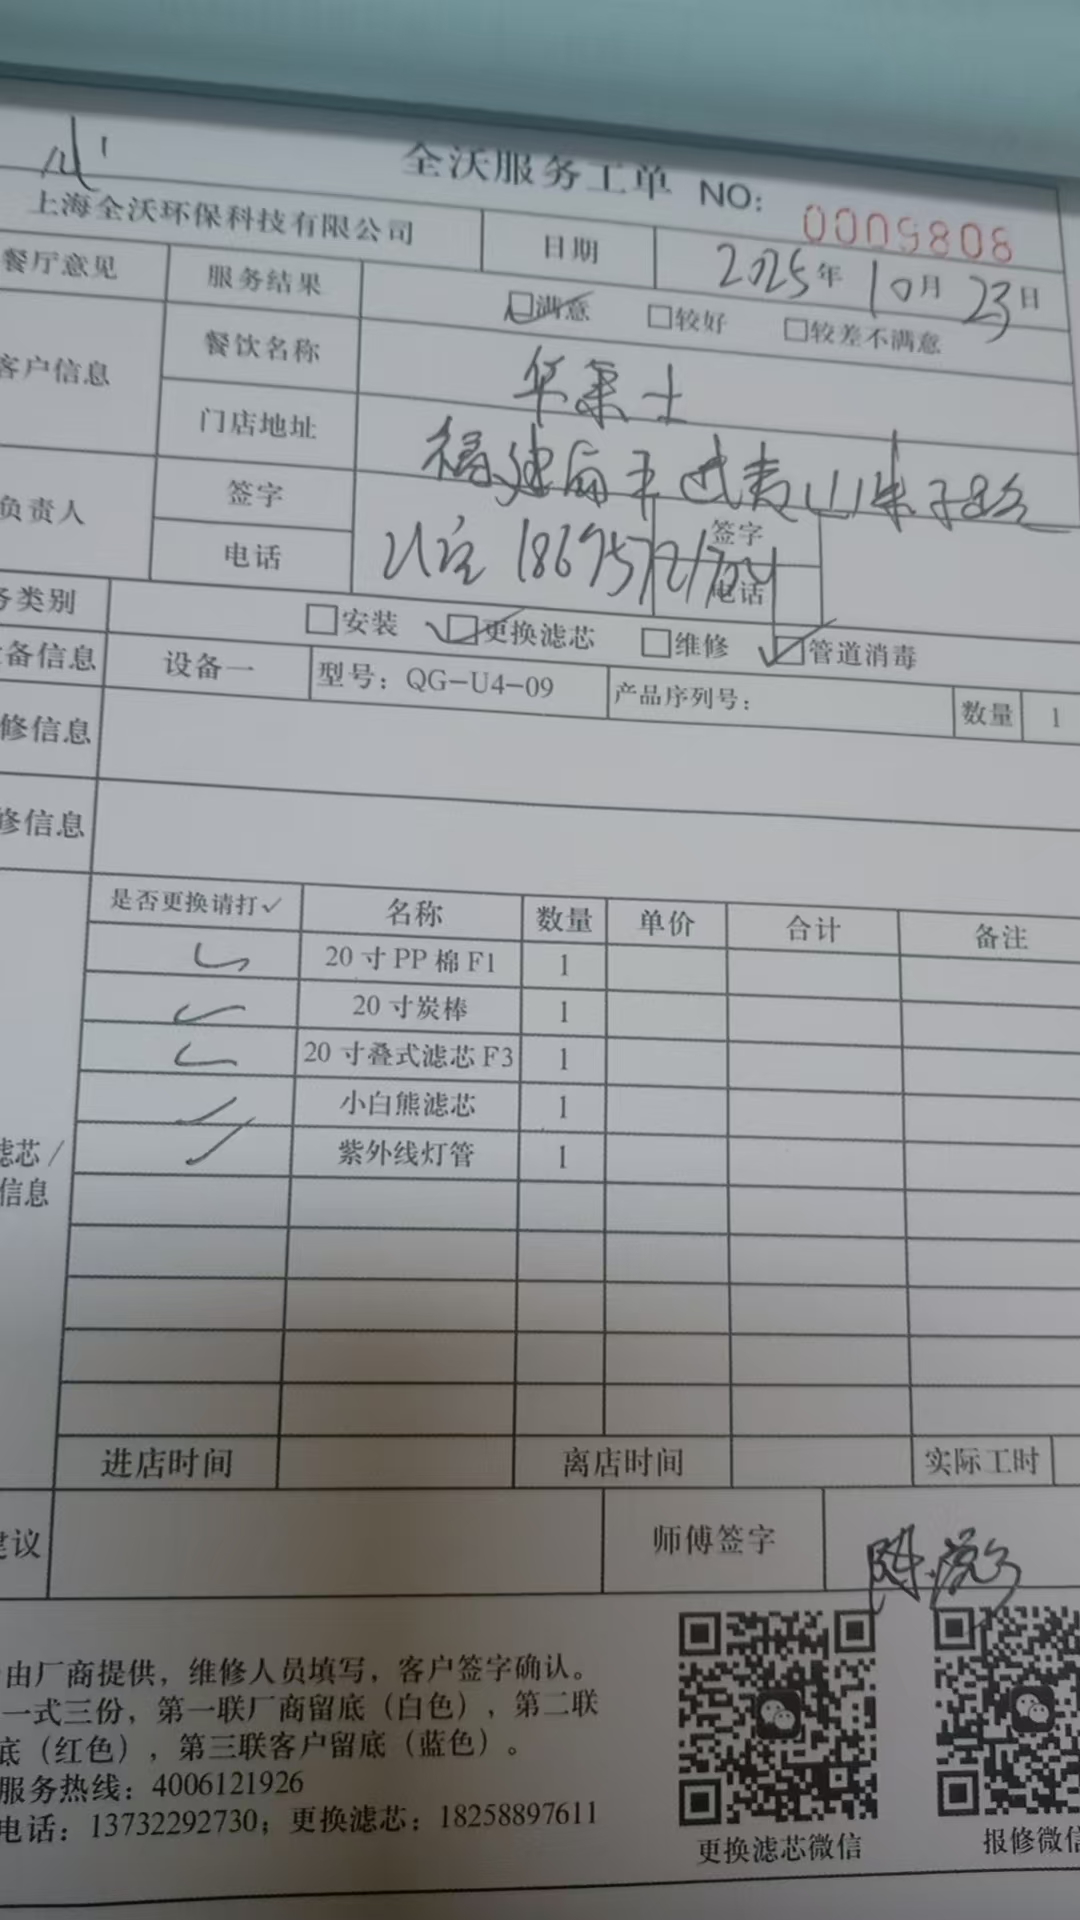 全沃服务工单 NO: 0009808
上海全沃环保科技有限公司 日期 2025年10月23日
餐厅意见 服务结果 满意 较好 较差不满意
客户信息 餐饮名称 华莱士
门店地址 福建南平武夷山朱子路
负责人 签字 签字
电话 电话
务类别 安装 更换滤芯 维修 管道消毒
备信息 设备一 型号：QG-U4-09 产品序列号： 数量 1
修信息
修信息
是否更换请打✓ 名称 数量 单价 合计 备注
20寸PP棉F1 1
20寸炭棒 1
20寸叠式滤芯F3 1
小白熊滤芯 1
紫外线灯管 1
滤芯/
信息
进店时间 离店时间 实际工时
建议 师傅签字
由厂商提供，维修人员填写，客户签字确认。
一式三份，第一联厂商留底（白色），第二联
底（红色），第三联客户留底（蓝色）。
服务热线：4006121926
电话：13732292730；更换滤芯：18258897611
更换滤芯微信 报修微信